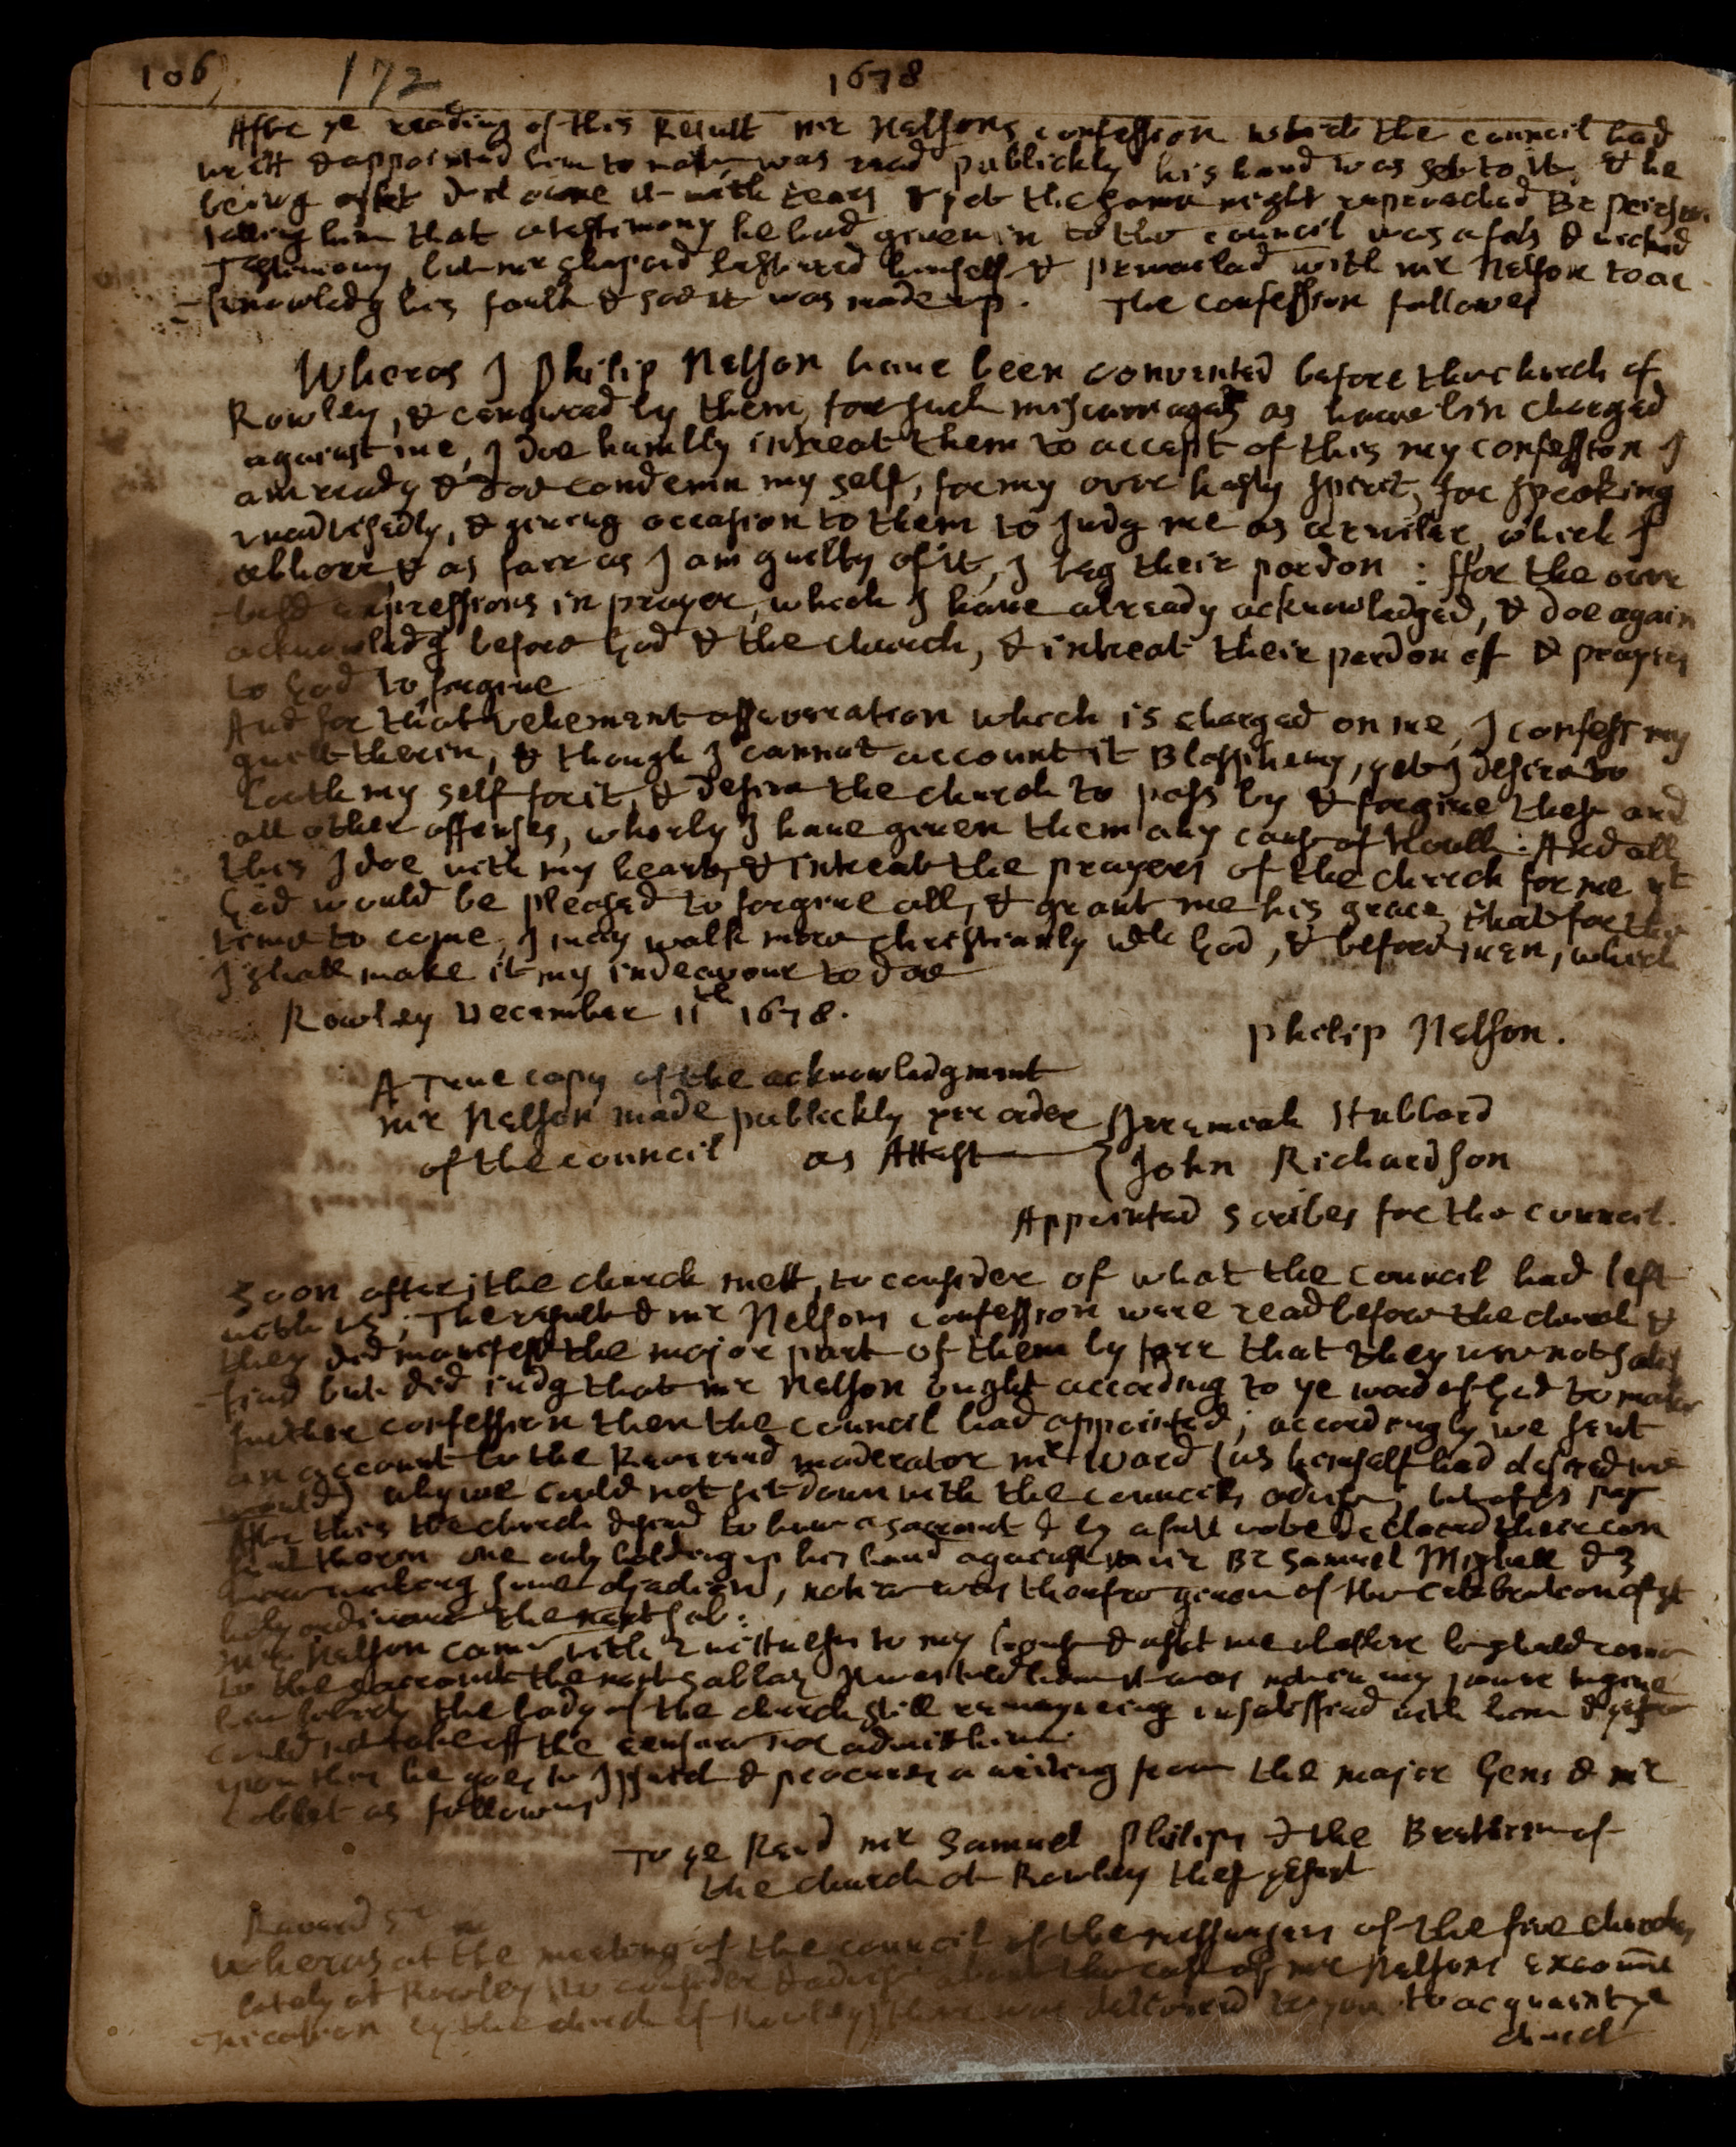 106) 172 1678
After ye reading of this Result mr Nelsons confession which the council had
writt & appointed him to make, was read publickly his hand was set to it, & he
being askt did owne it with tears & yet the same night reproached Br Peirson
telling him that a testimony he had given in to the council was a fals & wicked
Testimony, but mr Shepard bestirred himself & prevailed with mr Nelson to ac
-knowledg his fault & soe it was made up. The Confession followes
Wheras I Philip Nelson have been convented before the church of
Rowley, & censured by them, for such miscarriages as have bin charged
against me, I doe humbly intreat them to accept of this my confession I
am ready & doe condemn my self, for my over hasty spirit, for speaking
unadvisedly, & giving occasion to them to judg me as a reviler, which I
abhorr, & as farr as I am guilty of it, I beg their pardon : ffor the over
-bold expressions in prayer, which I have already acknowledged, & doe again
acknowledg before God & the church, & intreat their pardon of & prayers
to God to forgive
And for that vehement asseveration which is charged on me, I confess my
guilt therin, & though I cannot account it Blasphemy, yet I desire to
loath my self for it, & desire the church to pass by & forgive these and
all other offenses, wherby I have given them any cause of trouble : And all
this I doe with my heart, & intreat the prayers of the church for me yt
God would be pleased to forgive all, & grant me his grace, that for the
time to come, I may walk more christianly wth God, & before men, which
I shall make it my indeavour to doe
Rowley December 11th 1678.
Philip Nelson.
A True copy of the acknowledgment
mr Nelson made publickly per order
of the council as Attest
{ Jeremiah Hubbard
John Richardson
Appointed scribes for the council.
Soon after; the church mett, to consider of what the Council had left
with us; The result & mr Nelsons confession were read before the church &
they did manifest the major part of them by farr that they were not satis
-fied but did judg that mr Nelson ought according to ye word of God to make
further confession then the council had appointed; accordingly we sent
an account to the Reverend moderator mr Ward (as himself had desired we
would) why we could not sit down with the councils advise;
After this the church agreed to have a sacrament & by a full vote declared their con
sent therein one only holding up his hand against it viz Br Samuel Mighell & 3
making some objection, notice was therefore given of the celebration of yt
holy ordinance the next sab:
mr Nelson came with 2 witnesses to my house & askt me whether he should come
to the sacrament the next sabbath I told him it was not in my power to give
him liberty the body of the church still remayneing unsatisfied with him & yrfor
could not take off the censure nor admitt him
upon this he goes to Ipswich & procures a writing from the major Gens & mr
Cobbet as followes
To ye Revd mr Samuel Philips & the Brethren of
the church at Rowley these present
Reverd Sr
Wheras at the meeting of the council of the messengers of the five churches
lately at Rowley (to consider & advise about the case of mr Nelsons excommu
-nication by the church of Rowley) there was delivered to you to acquaint ye
church